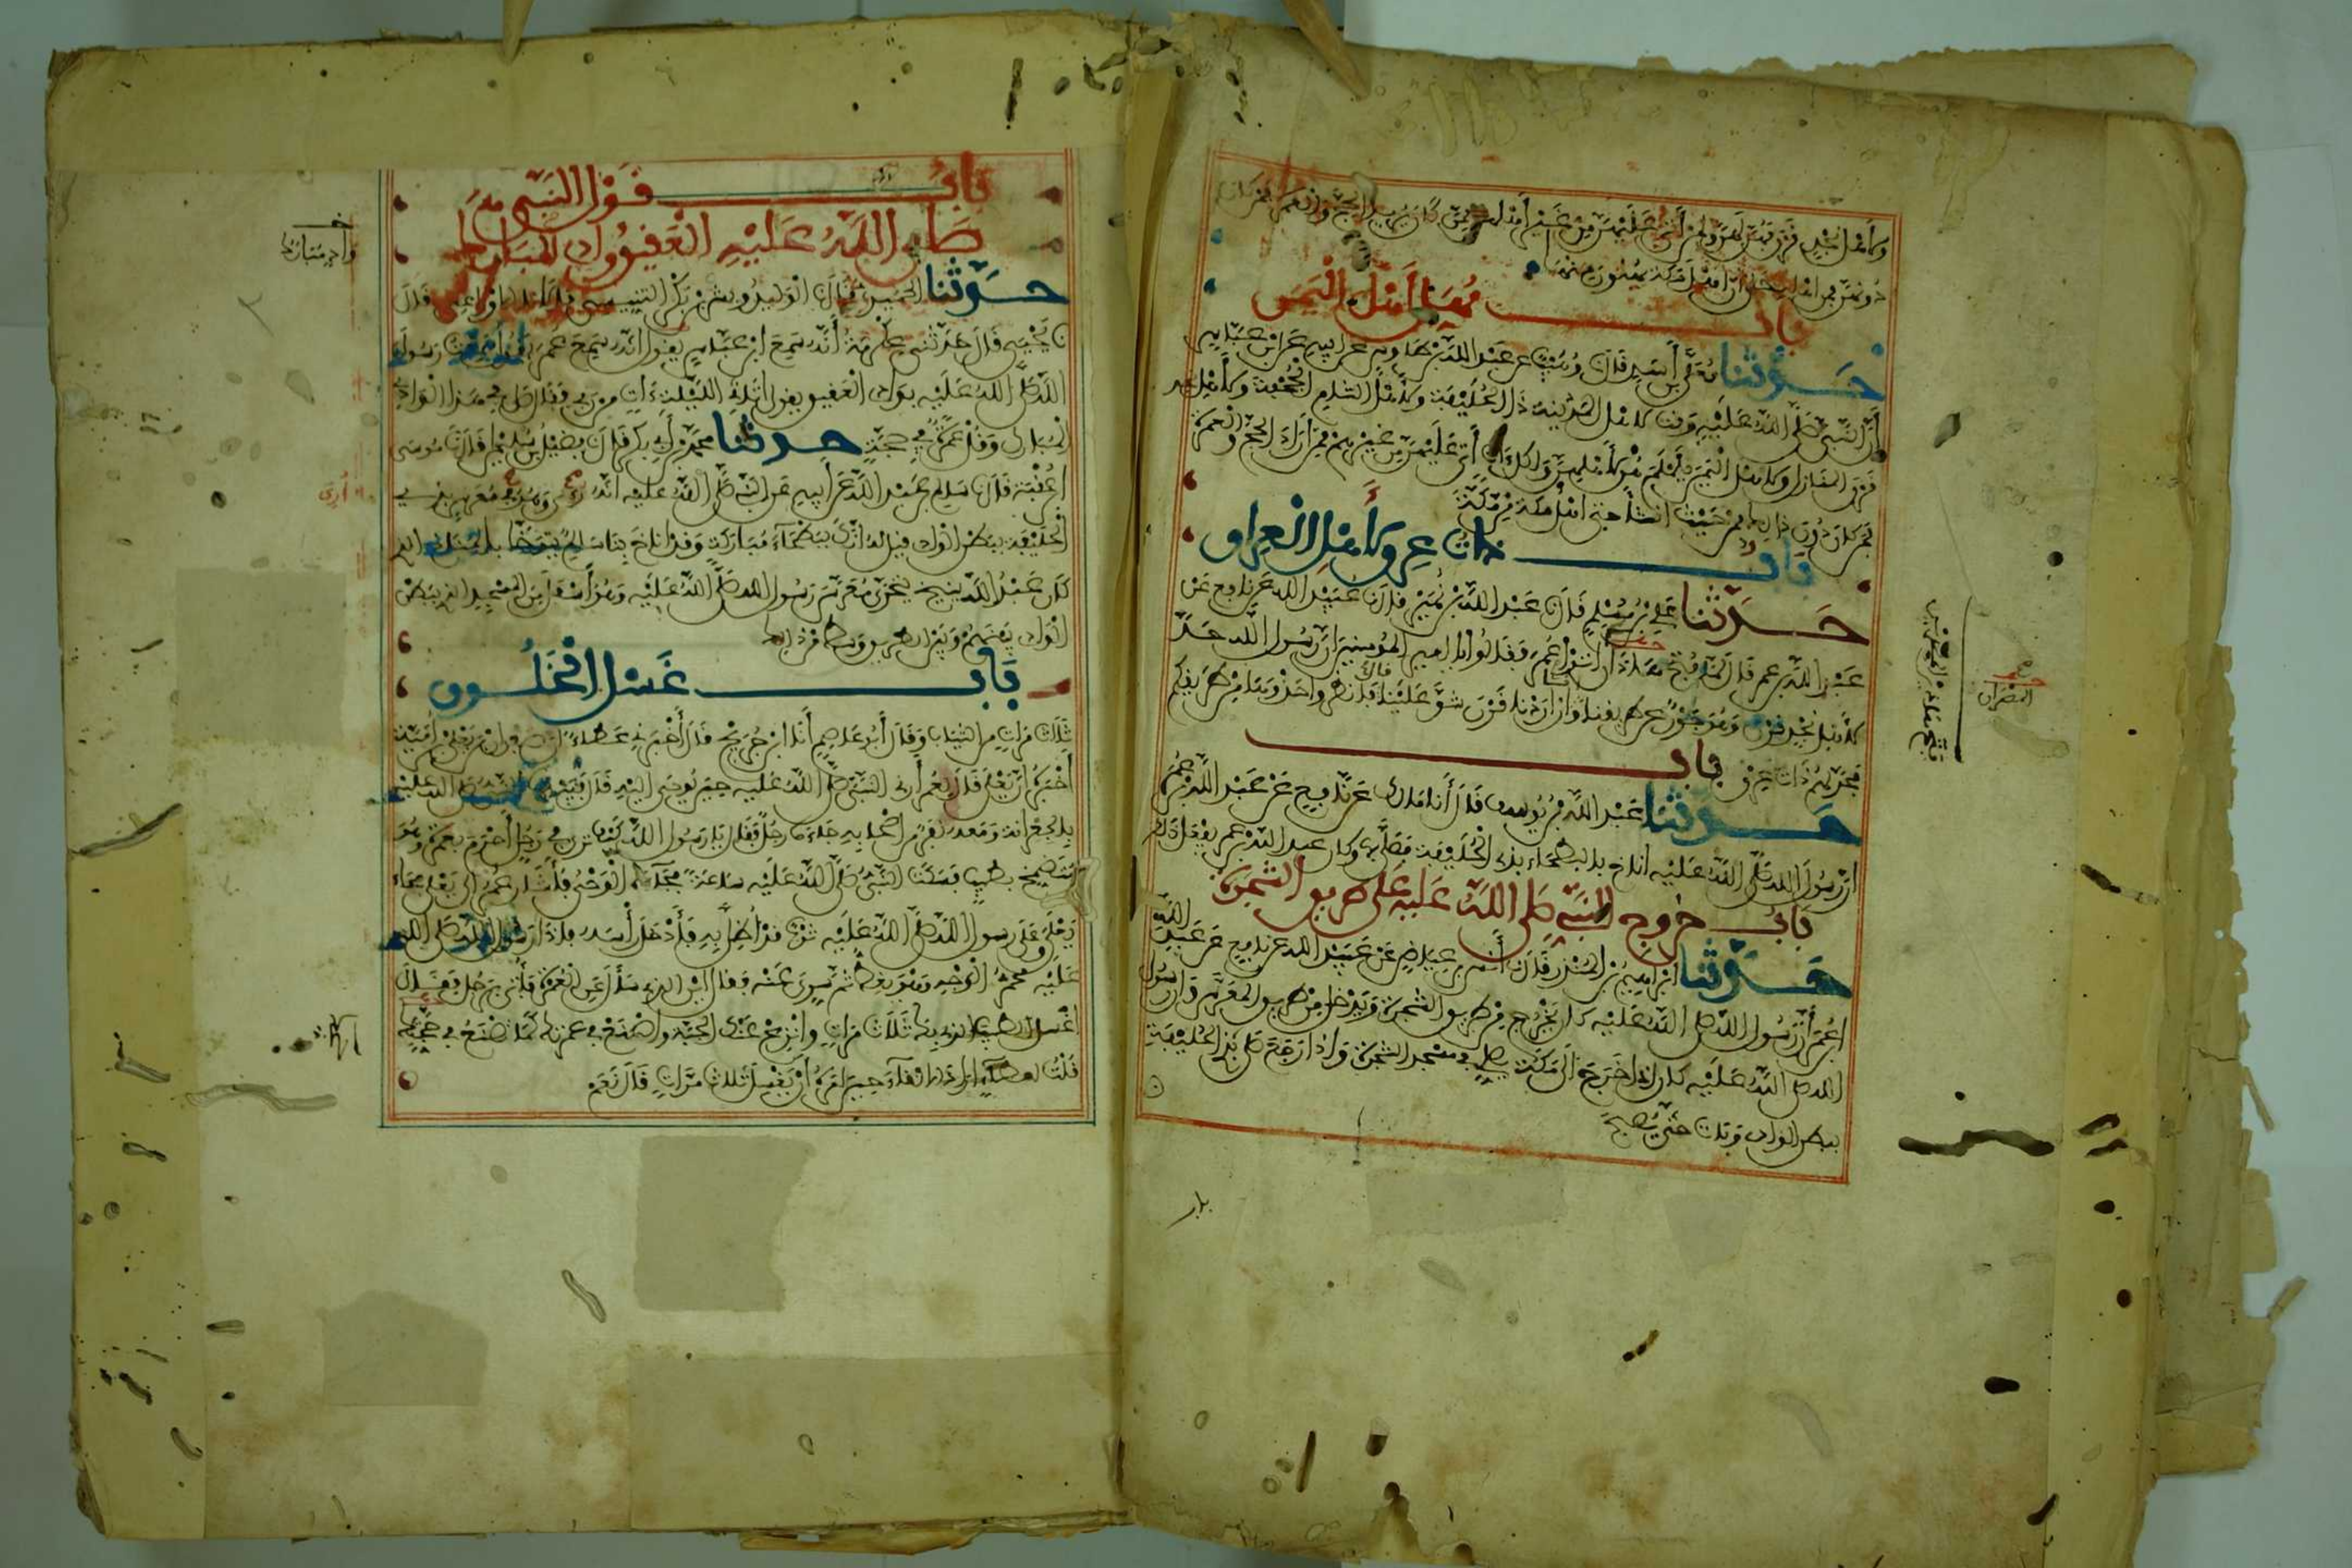 ولأهل نجد قرن فهن لهن ولمن أتى عليهن من غير أهلهن ممن كان يريد الحج والعمرة فمن كان
دونهن فمن أهله حتى ان أهل مكة يهلون منها
باب مهل أهل اليمن
حدثنا معلى بن أسد قال وهيب عن عبد الله بن طاوس عن أبيه عن ابن عباس
أن النبي صلى الله عليه وقت لأهل المدينة ذا الحليفة ولأهل الشام الجحفة ولأهل نجد
قرن المنازل ولأهل اليمن يلملم هن لأهلهن ولكل آت أتى عليهن من غيرهم ممن أراد الحج والعمرة
فمن كان دون ذلك فمن حيث انشأ حتى أهل مكة من مكة
باب ذات عرق لأهل العراق
حدثنا علي بن مسلم قال عبد الله بن نمير قال عبيد الله عن نافع عن
عبد الله بن عمر قال لما فتح هذان أتوا عمر وقالوا يا أمير المؤمنين ان رسول الله حد
لأهل نجد قرنا وهو جور عن طريقنا وإنا إن أردنا قرن شق علينا قال فانظروا حذوها من طريقكم
فحد لهم ذات عرق باب
حدثنا عبد الله بن يوسف قال أنا مالك عن نافع عن عبد الله بن عمر
أن رسول الله صلى الله عليه أناخ بالبطحاء بذي الحليفة فصلى بها وكان عبد الله بن عمر يفعل ذلك
باب خروج النبي صلى الله عليه على طريق الشجرة
حدثنا إبراهيم بن المنذر قال أنس بن عياض عن عبيد الله عن نافع عن عبد الله
ابن عمر أن رسول الله صلى الله عليه كان يخرج من طريق الشجرة ويدخل من طريق المعرس وأن رسول
الله صلى الله عليه كان إذا خرج إلى مكة يصلي في مسجد الشجرة وإذا رجع صلى بذي الحليفة
ببطن الوادي وبات حتى يصبح
المصران
باب قول النبي
صلى الله عليه العقيق واد مبارك
حدثنا الحميدي قال الوليد وبشر بن بكر التنيسي قالا الأوزاعي قال
يحيى قال حدثني عكرمة أنه سمع ابن عباس يقول انه سمع عمر يقول سمعت رسول
الله صلى الله عليه بوادي العقيق يقول أتاني الليلة آت من ربي فقال صل في هذا الوادي
المبارك وقل عمرة في حجة حدثنا محمد بن أبي بكر قال فضيل بن سليمن قال موسى
ابن عقبة قال سالم بن عبد الله عن أبيه عن النبي صلى الله عليه انه رئي وهو في معرس بذي
الحليفة ببطن الوادي قيل له انك ببطحاء مباركة وقد أناخ بنا سالم يتوخى بالمناخ الذي
كان عبد الله ينيخ يتحرى معرس رسول الله صلى الله عليه وهو أسفل من المسجد الذي ببطن
الوادي بينهم وبين الطريق وسط من ذلك
باب غسل الخلوق
ثلاث مرات من الثياب وقال أبو عاصم أنا ابن جريج قال أخبرني عطاء ان صفوان بن يعلى بن أمية
أخبره أن يعلى قال لعمر أرني النبي صلى الله عليه حين يوحى إليه قال فبينما النبي صلى الله عليه
بالجعرانة ومعه نفر من أصحابه جاءه رجل فقال يا رسول الله كيف ترى في رجل أحرم بعمرة وهو
متضمخ بطيب فسكت النبي صلى الله عليه ساعة فجاءه الوحي فأشار عمر إلى يعلى فجاء
يعلى وعلى رسول الله صلى الله عليه ثوب قد أظل به فأدخل رأسه فإذا رسول الله صلى الله
عليه محمر الوجه وهو يغط ثم سري عنه فقال أين الذي سأل عن العمرة فأتي برجل فقال
اغسل الطيب الذي بك ثلاث مرات وانزع عنك الجبة واصنع في عمرتك كما تصنع في حجتك
قلت لعطاء أراد الانقاء حين أمره أن يغسل ثلاث مرات قال نعم
واد مبارك
أري